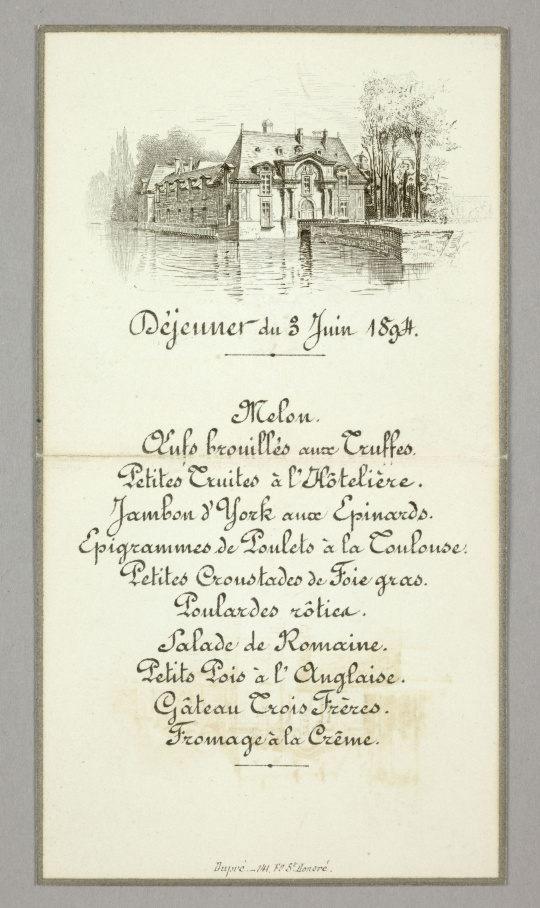 Déjeuner du 3 Juin 1894.
Melon.
Œufs brouillés aux Truffes.
Petites Truites à l'Hôtelière.
Jambon d'York aux Epinards.
Epigrammes de Poulets à la Toulouse.
Petites Croustades de Foie gras.
Poulardes rôties.
Salade de Romaine.
Petits Pois à l'Anglaise.
Gâteau Trois Frères.
Fromage à la Crême.
Dupré._141, Fg St Honoré.